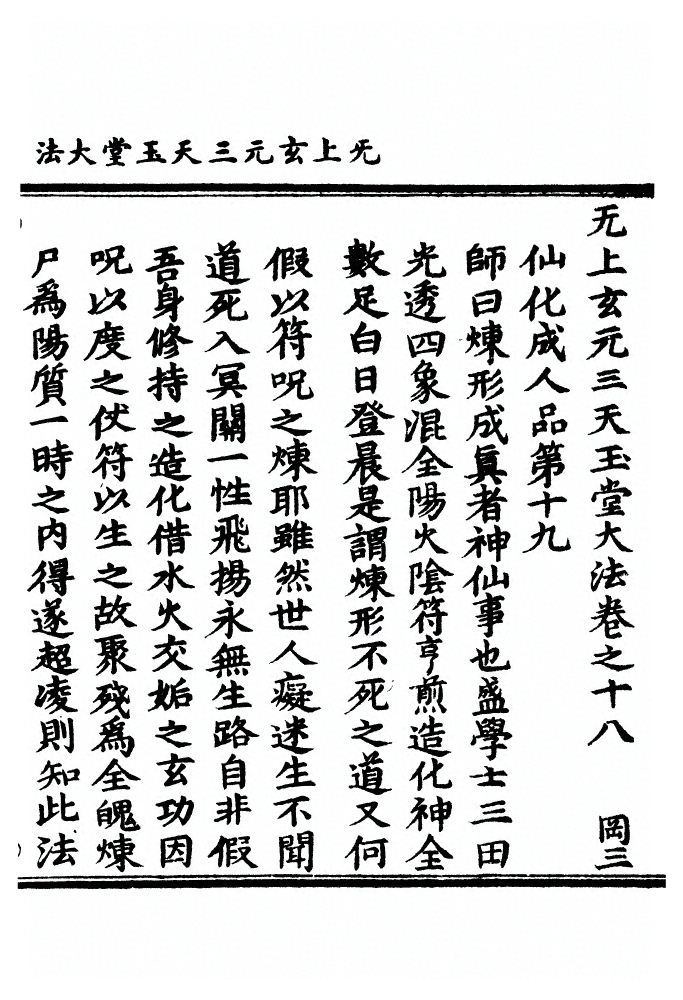 法大堂玉天三元玄上旡
旡上玄元三天玉堂大法卷之十八 岡三
仙化成人品第十九
師曰煉形成眞者神仙事也盛學士三田
光透四象混全陽火陰符亨煎造化神全
數足白日登晨是謂煉形不死之道又何
假以符呪之煉耶雖然世人癡迷生不聞
道死入冥關一性飛揚永無生路自非假
吾身修持之造化借水火交姤之玄功因
呪以度之伏符以生之故聚殘爲全魄煉
尸爲陽質一時之内得遂超凌則知此法